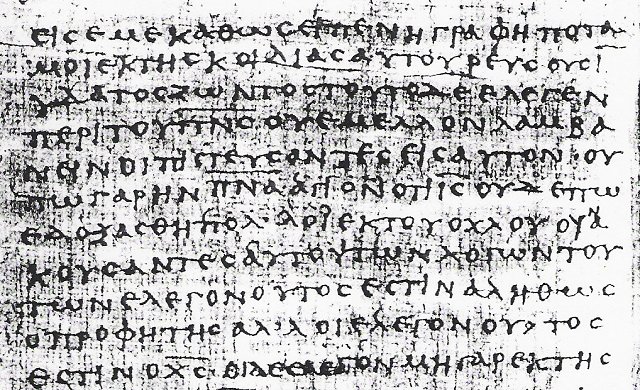 ειϲεμεκαθωϲειπενηγραφηποτα
μοιεκτηϲκοιλιαϲαυτουρευϲουϲι
υδατοϲζωντοϲτουτοδεελεγεν
περιτουπνϲουεμελλονλαμβα
νεινοιπιϲτευϲοντεϲειϲαυτονου
πωγαρηνπνααγιονοτιιϲουδεπω
εδοξαϲθηπολλοιεκτουοχλουοια
κουϲαντεϲαυτουτωνλογωντου
τωνελεγονουτοϲεϲτιναληθωϲ
οπροφητηϲαλλοιελεγονουτοϲ
εϲτινοχϲοιδεελεγονμηγαρεκτηϲ